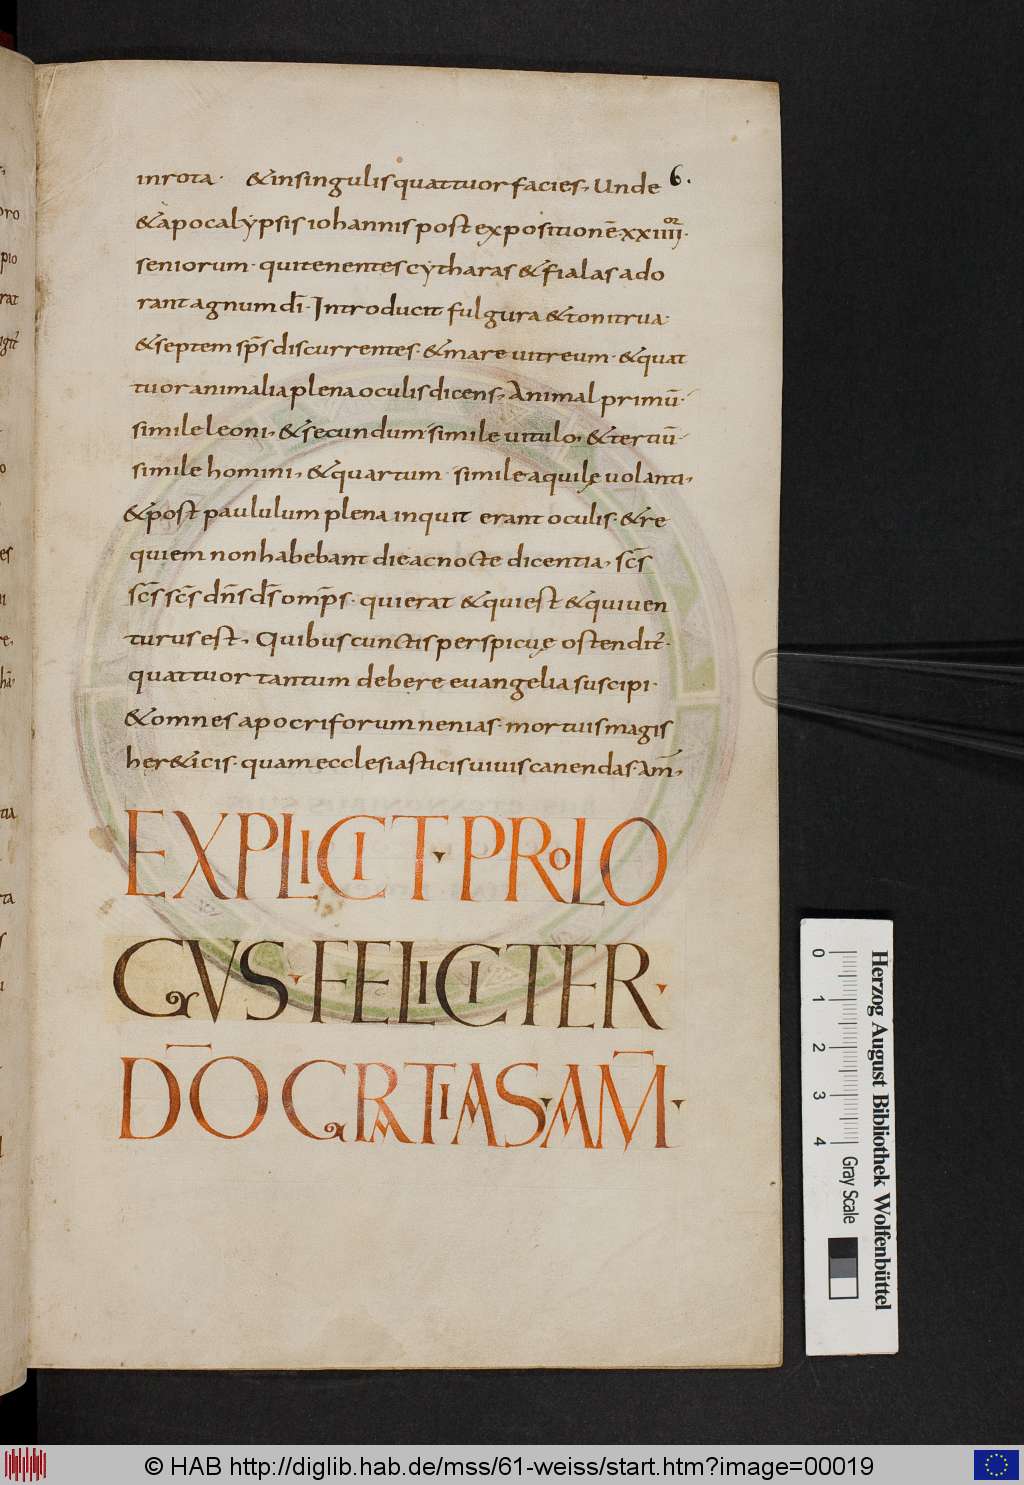 inrota· &insingulisquattuorfacies, Unde 6.
&apocalypsis iohannis post expositionē·xxiiii^or·
seniorum· quitenentes cytharas &fialas ado
rant agnum dī· Introducit fulgura &tonitrua·
&septem sp̄s discurrentes· &mare uitreum· &quat
tuor animalia plena oculis dicens, Animal primū·
simile leoni, &secundum simile uitulo, &tertiū·
simile homini, &quartum· simile aquilę uolanti,
&post paululum plena inquit erant oculis· &re
quiem non habebant die ac nocte dicentia, sc̄s
sc̄s sc̄s dn̄s ds̄ omp̄s· qui erat &qui est &quiuen
turus est, Quibus cunctis perspicuę ostendit᷑·
quattuor tantum debere euangelia suscipi·
&omnes apocriforum nenias· mortuis magis
her&icis· quam ecclesiasticis uiuis canendas· am̄,
EXPLICIT·PROLO
GVS·FELICITER·
D̄O GRATIAS·AM̄·
Herzog August Bibliothek Wolfenbüttel
0 1 2 3 4 Gray Scale
© HAB http://diglib.hab.de/mss/61-weiss/start.htm?image=00019